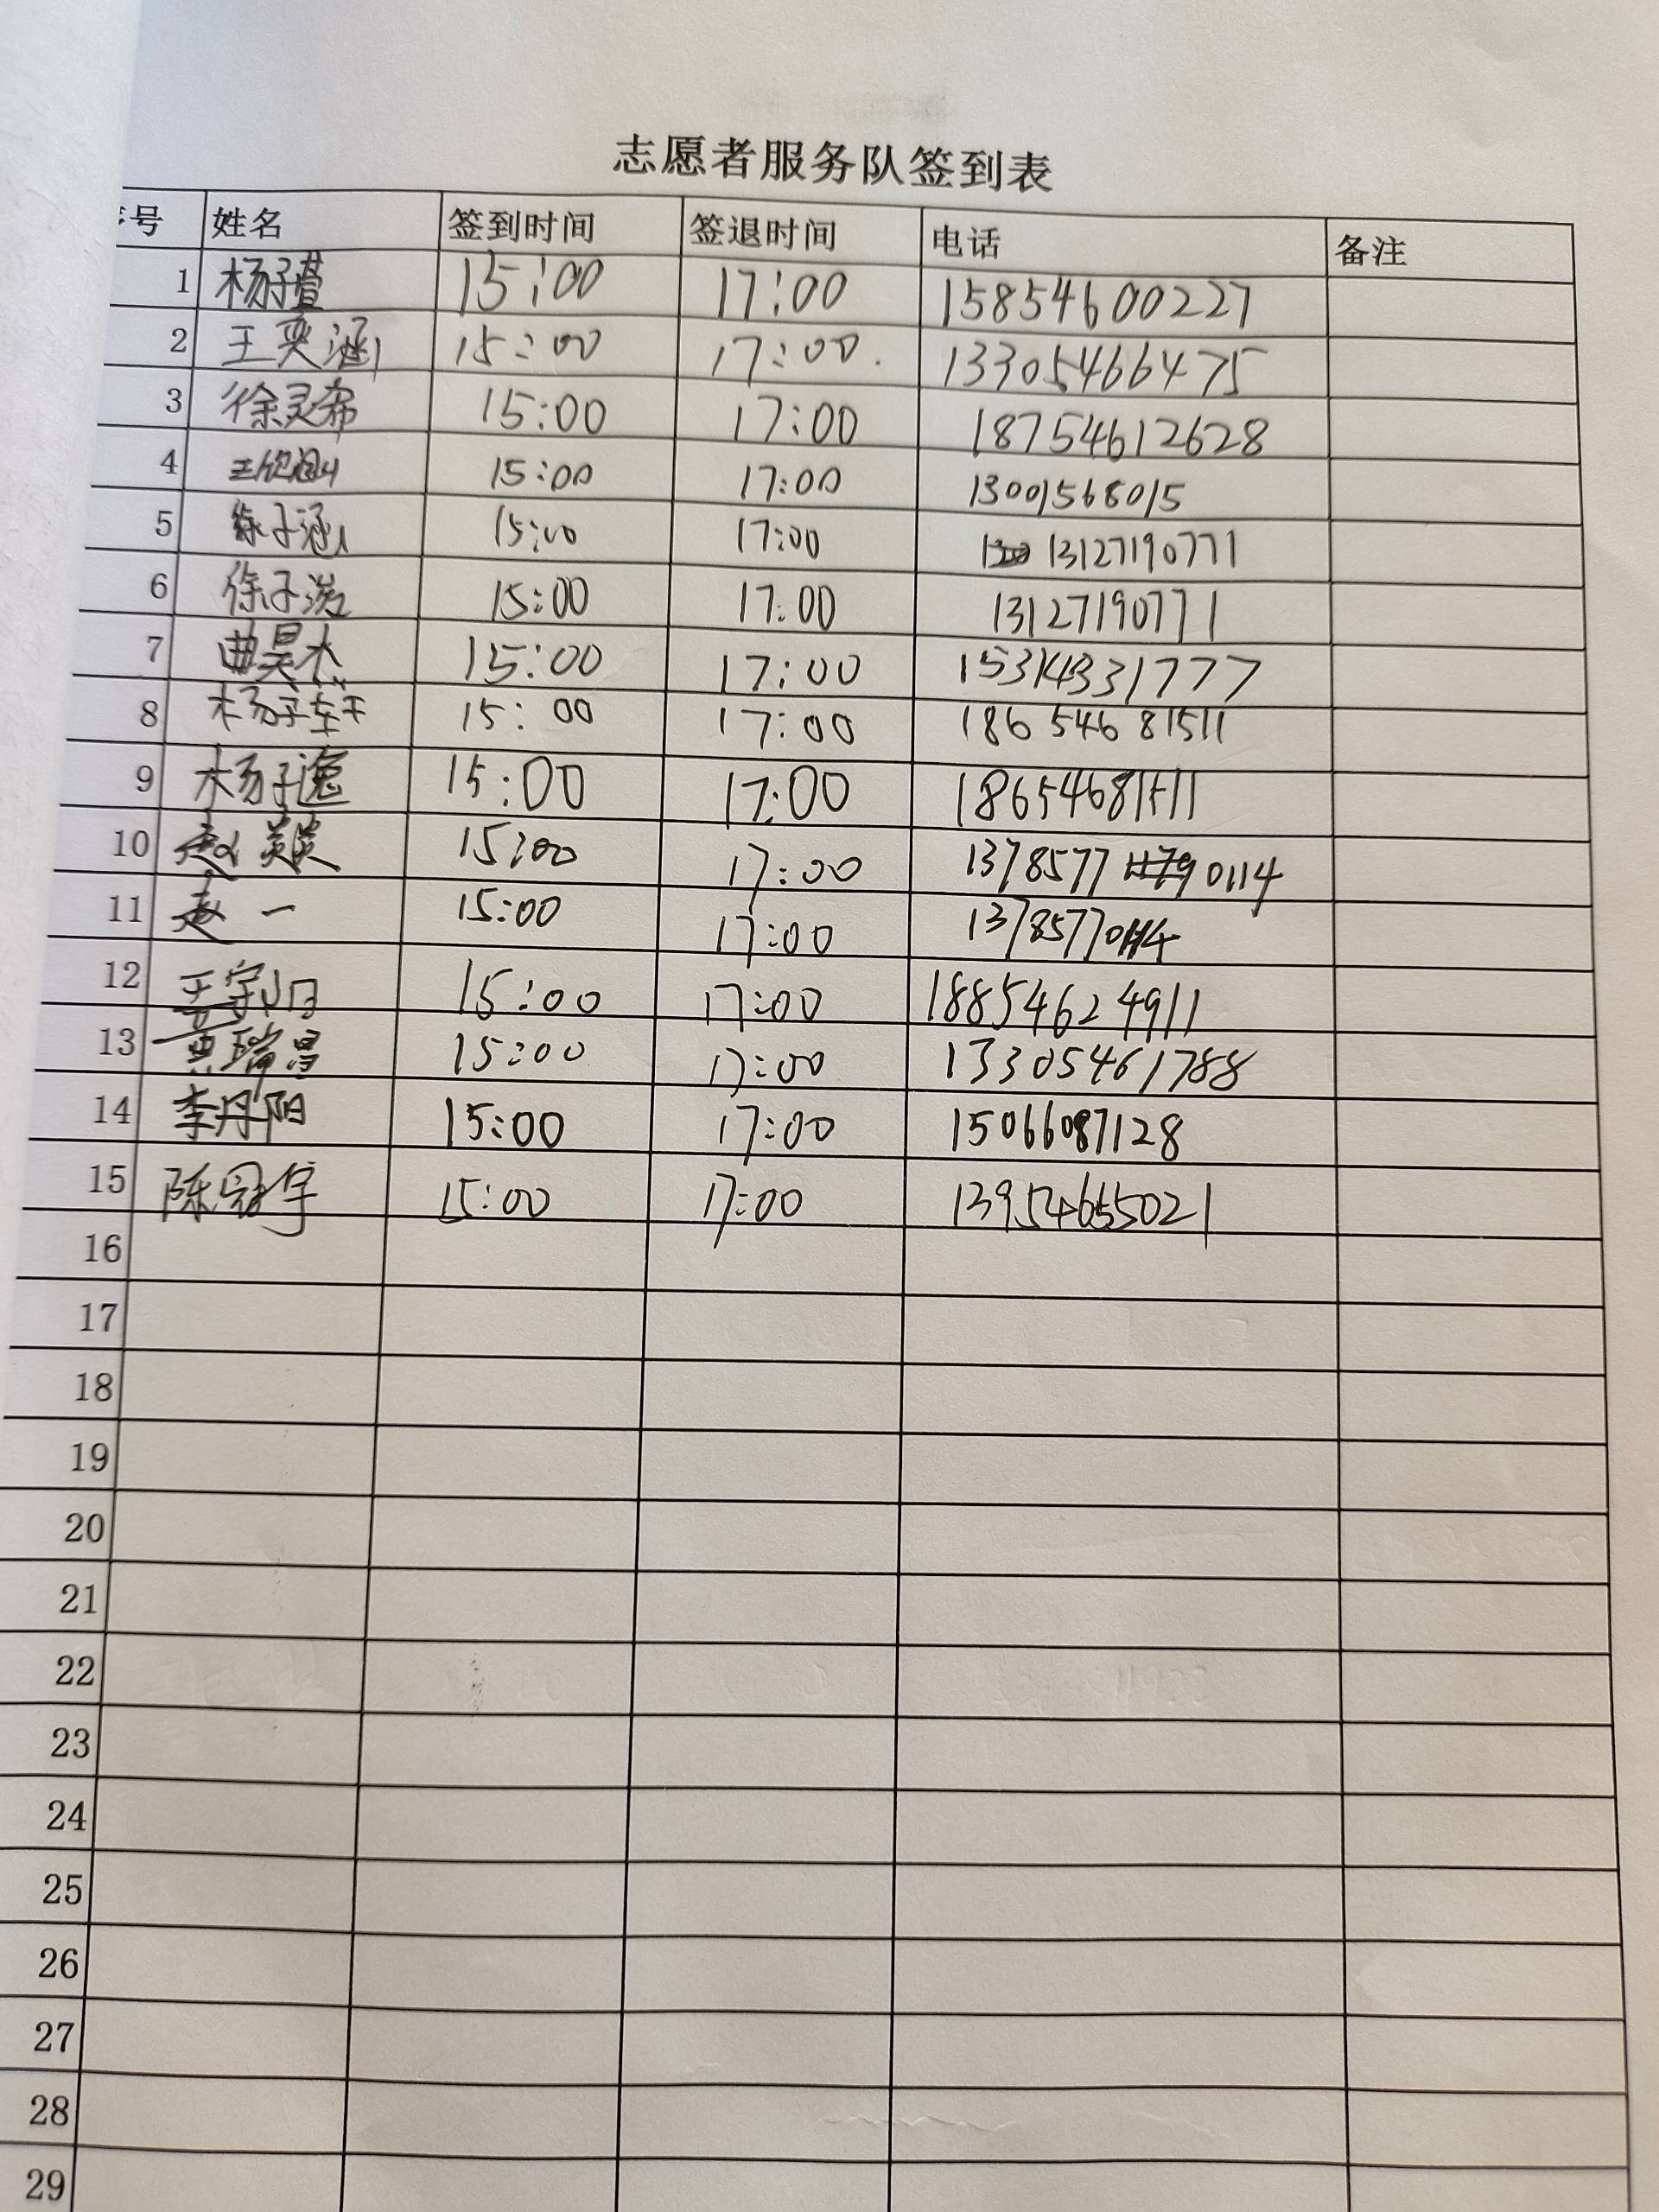 志愿者服务队签到表
序号 姓名 签到时间 签退时间 电话 备注
1 杨子萱 15:00 17:00 15854600227
2 王奕涵 15:00 17:00. 13305466475
3 徐灵希 15:00 17:00 18754612628
4 15:00 17:00 13001568015
5 徐子涵 15:00 17:00 13127190771
6 徐子 15:00 17:00 13127190771
7 曲昊 15:00 17:00 15314331777
8 杨子轩 15:00 17:00 186 546 81511
9 杨子逸 15:00 17:00 18654681511
10 赵 15:00 17:00 1378577 0114
11 赵一 15:00 17:00 13785770114
12 15:00 17:00 18854624911
13 黄瑞昌 15:00 17:00 13305461788
14 李丹阳 15:00 17:00 15066087128
15 陈冠宇 15:00 17:00 13954655021
16
17
18
19
20
21
22
23
24
25
26
27
28
29